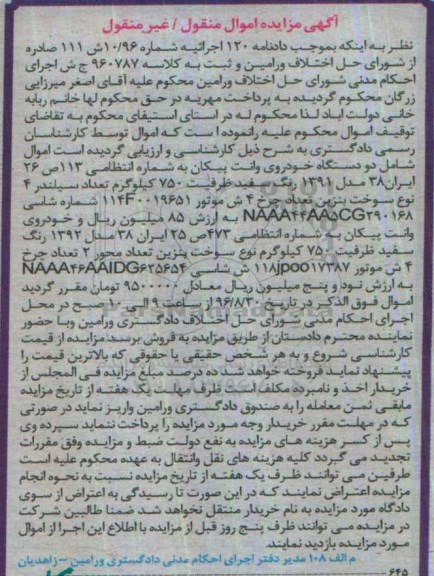 آگهی مزایده اموال منقول / غیر منقول
نظر به اینکه بموجب دادنامه ۱۲۰ اجرائیه شماره ۱۰/۹۶ش ۱۱۱ صادره
از شورای حل اختلاف ورامین و ثبت به کلاسه ۹۶۰۷۸۷ ج ش اجرای
احکام مدنی شورای حل اختلاف ورامین محکوم علیه آقای اصغر میرزایی
زرگان محکوم گردیده به پرداخت مهریه در حق محکوم لها خانم ربابه
خانی دولت آباد لذا محکوم له در استای استیفای محکوم به تقاضای
توقیف اموال محکوم علیه رانموده ا ست که اموال توسط کارشناسان
رسمی دادگستری به شرح ذیل کارشناسی و ارزیابی گردیده است اموال
شامل دو دستگاه خودروی وانت پیکان به شماره انتظامی ۱۱۳ص ۲۶
ایران۳۸ مدل ۱۳۹۱ رنگ سفید ظرفیت ۷۵۰ کیلوگرم تعداد سیلندر ۴
نوع سوخت بنزین تعداد چرخ ۴ ش موتور ۱۱۴F۰۰۱۹۶۵۱ شماره شاسی
NAAA۴۴AA۵CG۲۹۰۱۶۸ به ارزش ۸۵ میلیون ریال و خودروی
وانت پیکان به شماره انتظامی ۴۷۳ص ۲۵ ایران ۳۸ مدل ۱۳۹۲ رنگ
سفید ظرفیت ۷۵۰ کیلوگرم نوع سوخت بنزین تعداد محور ۲ تعداد چرخ
۴ ش موتور ۱۱۸jp۰۰۱۷۳۸۷ ش شاسی NAAA۴۶AAIDG۶۲۵۶۵۴
به ارزش نود و پنج میلیون ریال معادل ۹۵۰۰۰۰۰ تومان مقرر گردید
اموال فوق الذکر در تاریخ ۹۶/۸/۳۰ از ساعت ۹ الی ۱۰ صبح در محل
اجرای احکام مدنی شورای حل اختلاف دادگستری ورامین وبا حضور
نماینده محترم دادستان از طریق مزایده به فروش برسد مزایده از قیمت
کارشناسی شروع و به هر شخص حقیقی یا حقوقی که بالاترین قیمت را
پیشنهاد نماید فروخته خواهد شد ده درصد مبلغ مزایده فی المجلس از
خریدار اخذ و نامبرده مکلف است ظرف مهلت یک هفته از تاریخ مزایده
مابقی ثمن معامله را به صندوق دادگستری ورامین واریز نماید در صورتی
که در مهلت مقرر خریدار وجه مورد مزایده را پرداخت ننماید سپرده وی
پس از کسر هزینه های مزایده به نفع دولت ضبط و مزایده وفق مقررات
تجدید می گردد کلیه هزینه های نقل وانتقال به عهده محکوم علیه است
طرفین می توانند ظرف یک هفته از تاریخ مزایده نسبت به نحوه انجام
مزایده اعتراض نمایند که در این صورت تا رسیدگی به اعتراض از سوی
دادگاه مورد مزایده به نام خریدار منتقل نخواهد شد ضمنا طالبین شرکت
در مزایده می توانند ظرف پنج روز قبل از مزایده با اطلاع این اجرا از اموال
مورد مزایده بازدید نمایند.
م الف ۱۰۸ مدیر دفتر اجرای احکام مدنی دادگستری ورامین –زاهدیان
۶۴۵